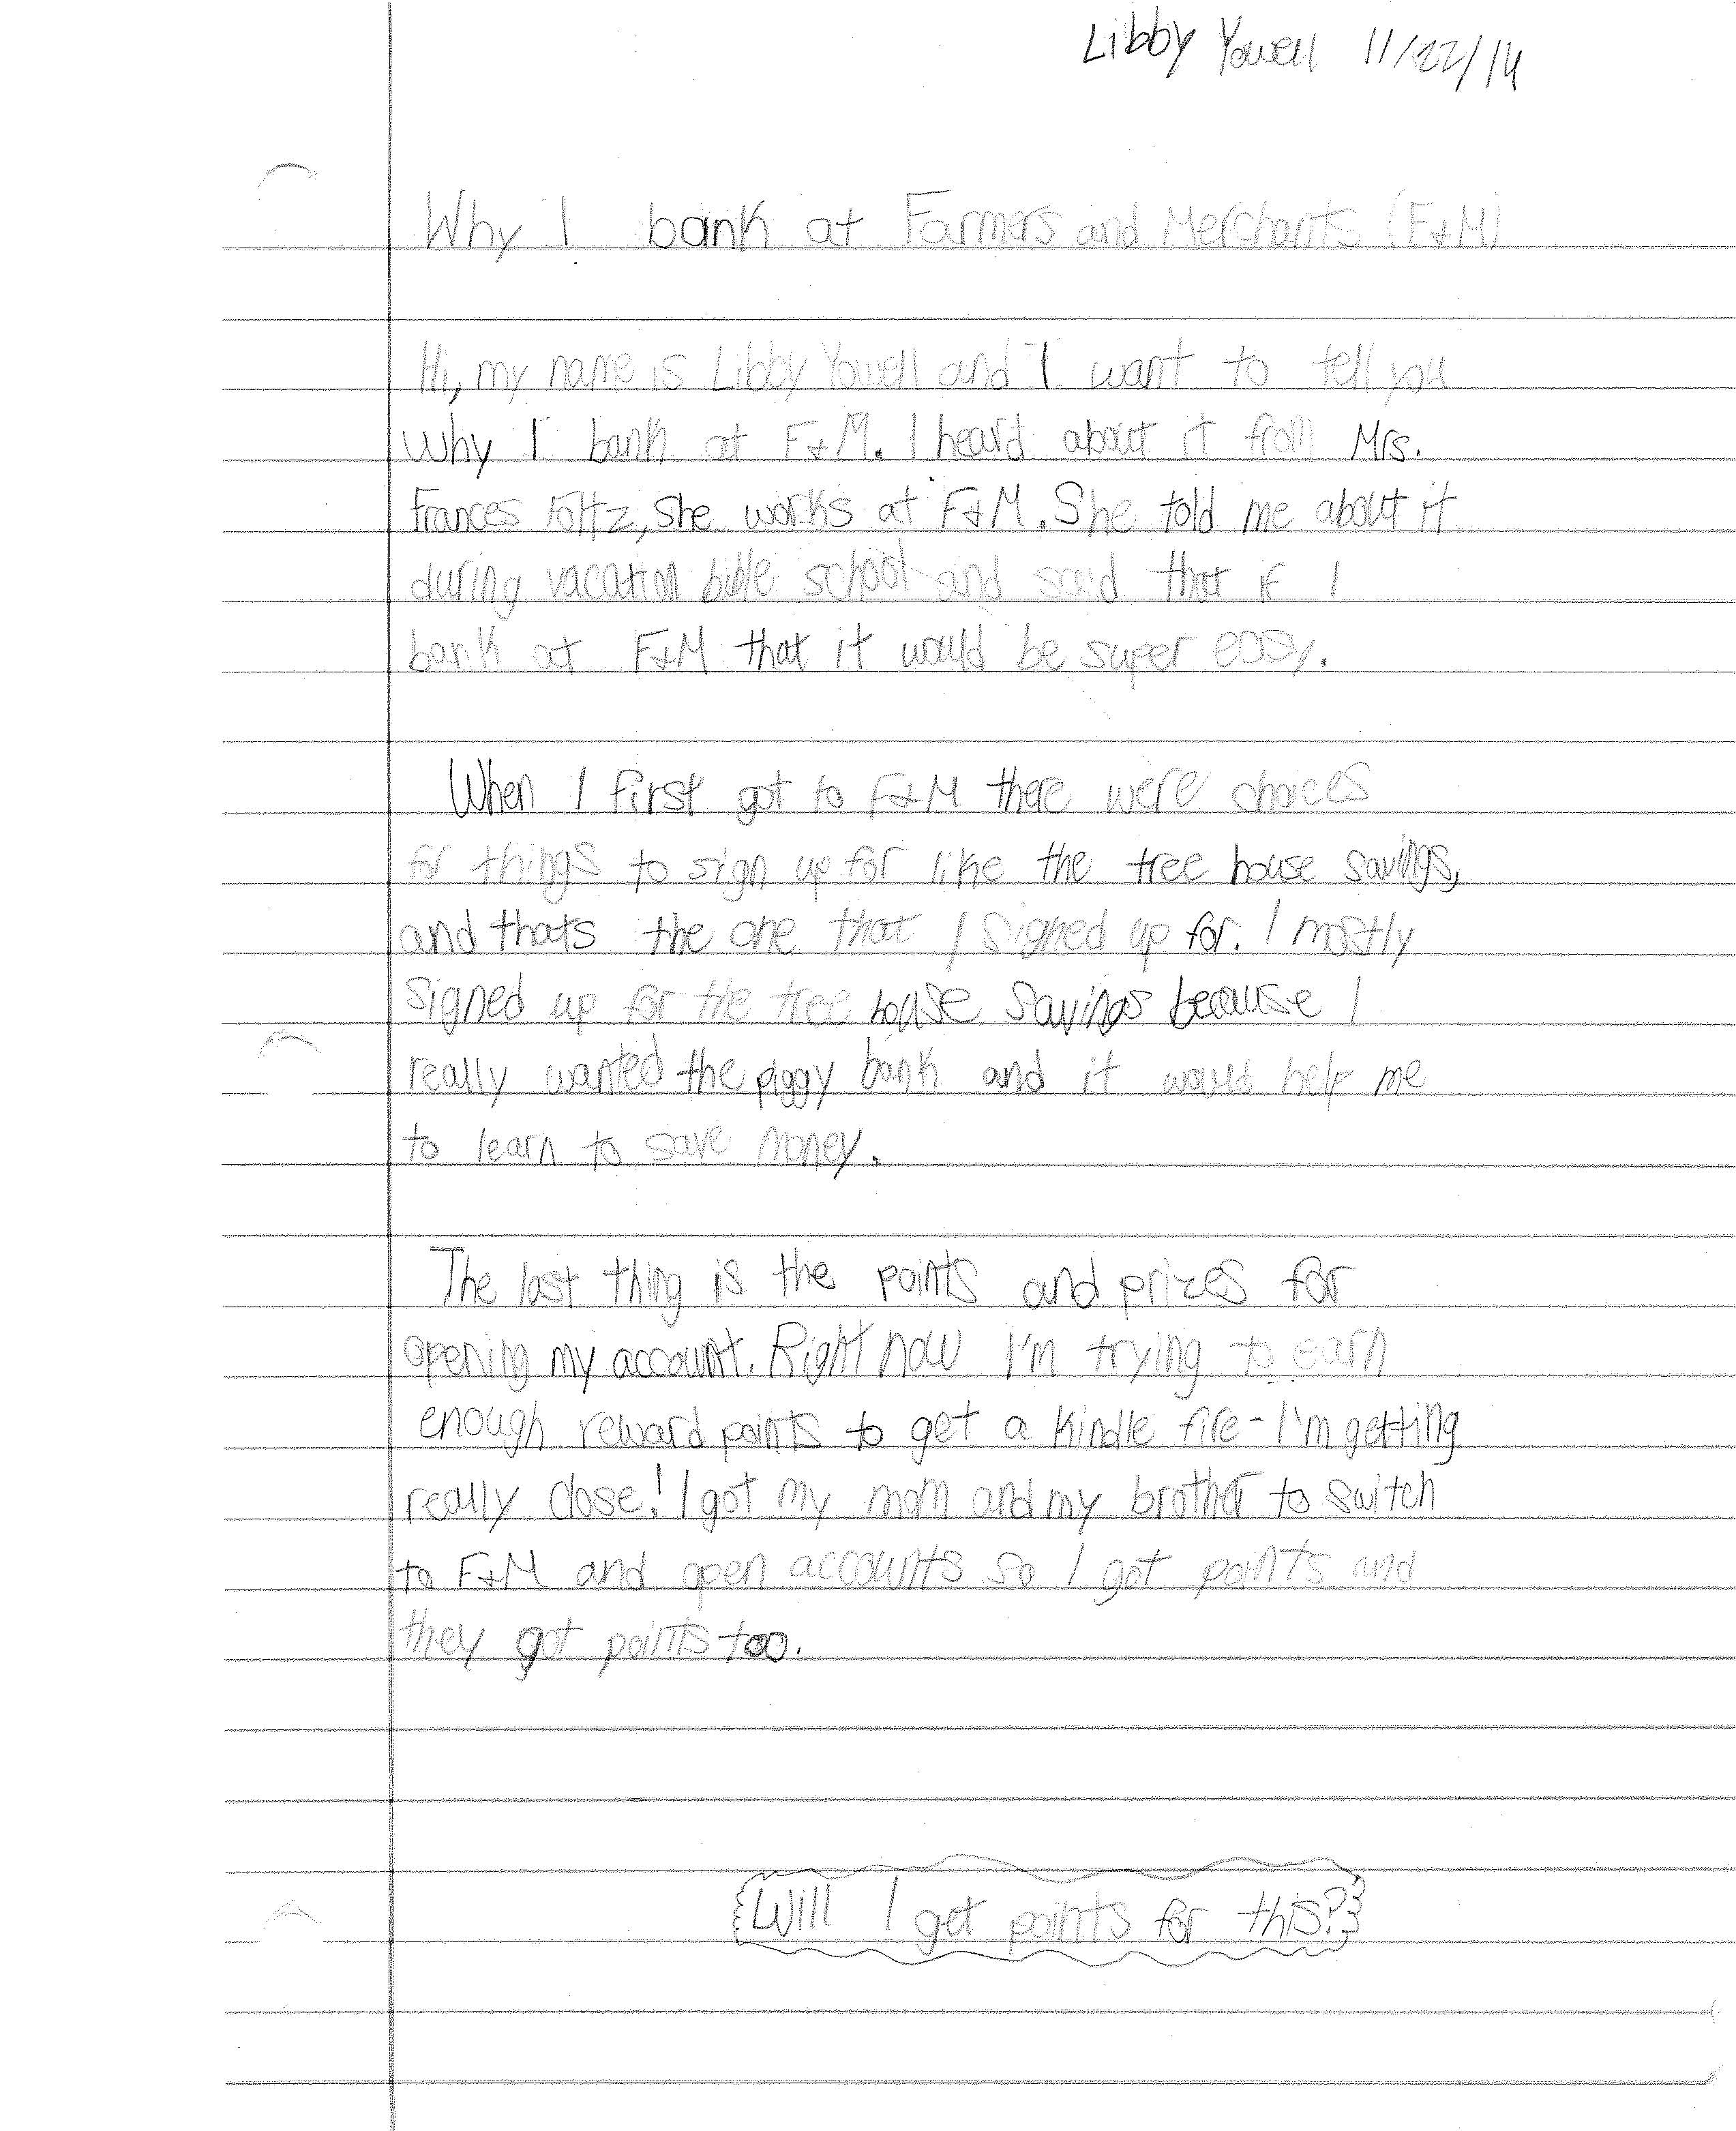 Libby Yowell 11/22/14
Why I bank at Farmers and Merchants (F&M)
Hi, my name is Libby Yowell and I want to tell you
why I bank at F&M. I heard about it from Mrs.
Frances Foltz, she works at F&M. She told me about it
during vacation bible school and said that if I
bank at F&M that it would be super easy.
When I first got to F&M there were choices
for things to sign up for like the tree house savings,
and thats the one that I signed up for. I mostly
signed up for the tree house savings because I
really wanted the piggy bank and it would help me
to learn to save money.
The last thing is the points and prizes for
opening my account. Right now I'm trying to earn
enough reward points to get a Kindle fire - I'm getting
really close! I got my mom and my brother to switch
to F&M and open accounts so I got points and
they got points too.
Will I get points for this?